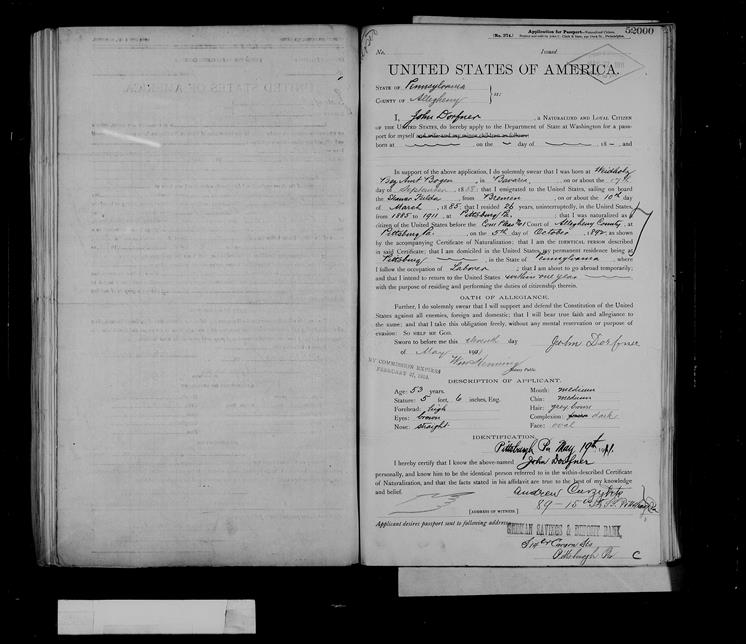 52000
Application for Passport—Naturalized Citizen.
(No. 374.)
No. Issued
UNITED STATES OF AMERICA.
STATE OF Pennsylvania
COUNTY OF Allegheny } ss:
I, John Dorfner, a NATURALIZED AND LOYAL CITIZEN
OF THE UNITED STATES, do hereby apply to the Department of State at Washington for a pass-
port for myself and wife and my minor children as follows:
born at on the day of 18 , and
In support of the above application, I do solemnly swear that I was born at Weidholz
Bez Amt Bogen, in Bavaria, on or about the 17th
day of September, 1858; that I emigrated to the United States, sailing on board
the Steamer Fulda from Bremen, on or about the 10th day
of March, 1885; that I resided 26 years, uninterruptedly, in the United States,
from 1885 to 1911, at Pittsburg Pa.; that I was naturalized as a
citizen of the United States before the Com Pleas No 1 Court of Allegheny County, at
Pittsburg Pa., on the 5th day of October, 1892, as shown
by the accompanying Certificate of Naturalization; that I am the IDENTICAL PERSON described
in said Certificate; that I am domiciled in the United States, my permanent residence being at
Pittsburg, in the State of Pennsylvania, where
I follow the occupation of Laborer; that I am about to go abroad temporarily;
and that I intend to return to the United States within one year
with the purpose of residing and performing the duties of citizenship therein.
OATH OF ALLEGIANCE.
Further, I do solemnly swear that I will support and defend the Constitution of the United
States against all enemies, foreign and domestic; that I will bear true faith and allegiance to
the same; and that I take this obligation freely, without any mental reservation or purpose of
evasion: SO HELP ME GOD.
Sworn to before me this day John Dorfner
of May, 191
Wm Henning
Notary Public
MY COMMISSION EXPIRES
FEBRUARY 27,
DESCRIPTION OF APPLICANT.
Age: 53 years. Mouth: medium
Stature: 5 feet, 6 inches, Eng. Chin: medium
Forehead: high Hair: grey brown
Eyes: brown Complexion: dark
Nose: straight. Face: oval
IDENTIFICATION.
Pittsburgh Pa May 19th 1911.
I hereby certify that I know the above-named John Dorfner
personally, and know him to be the identical person referred to in the within-described Certificate
of Naturalization, and that the facts stated in his affidavit are true to the best of my knowledge
and belief. Andrew
[ADDRESS OF WITNESS.] 89 – 15th St
Applicant desires passport sent to following address:
GERMAN SAVINGS & DEPOSIT BANK,
Carson Sts
Pittsburgh Pa
C